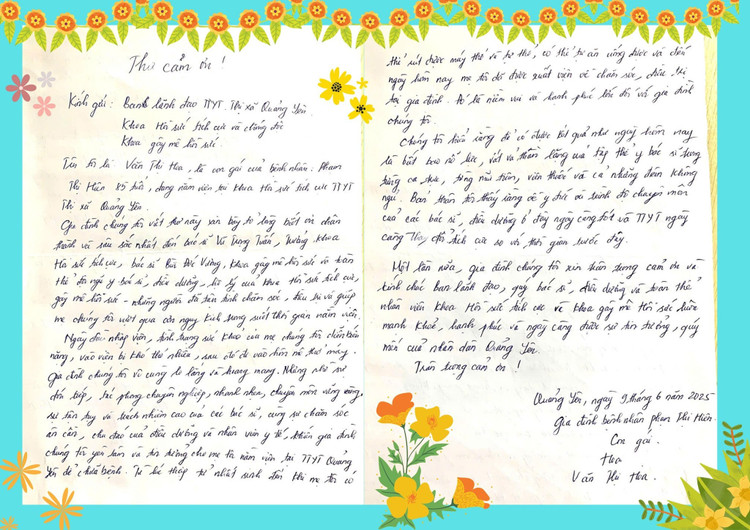 Thư cảm ơn !
Kính gửi : Ban lãnh đạo TTYT Thị xã Quảng Yên
Khoa Hồi sức tích cực và chống độc
Khoa gây mê hồi sức.
Tên tôi là Văn Thị Hoa, là con gái của bệnh nhân: Phạm
Thị Hiên 85 tuổi, đang nằm viện tại khoa Hồi sức tích cực TTYT
Thị xã Quảng Yên.
Gia đình chúng tôi viết thư này xin bày tỏ lòng biết ơn chân
thành và sâu sắc nhất đến bác sĩ Vũ Trung Tuấn, trưởng khoa
Hồi sức tích cực, bác sĩ Bùi Đức Vương, khoa gây mê hồi sức và toàn
thể đội ngũ y bác sĩ, điều dưỡng, hộ lý của khoa Hồi sức tích cực,
gây mê hồi sức - những người đã tận tình chăm sóc, điều trị và giúp
mẹ chúng tôi vượt qua cơn nguy kịch trong suốt thời gian nằm viện.
Ngày đầu nhập viện, tình trạng sức khoẻ của mẹ chúng tôi diễn biến
nặng, vào viện bị khó thở nhiều, sau đó đi vào hôn mê thở máy.
Gia đình chúng tôi vô cùng lo lắng và hoang mang. Nhưng nhờ sự
đón tiếp, tác phong chuyên nghiệp, nhanh nhẹn, chuyên môn vững vàng,
sự tận tuỵ và trách nhiệm cao của các bác sĩ, cùng sự chăm sóc
ân cần, chu đáo của điều dưỡng và nhân viên y tế, khiến gia đình
chúng tôi yên tâm và tin tưởng cho mẹ tôi nằm viện tại TTYT Quảng
Yên để chữa bệnh. Từ lúc thấp tử nhất sinh đến khi mẹ tôi có
thể rút được máy thở và tự thở, có thể tự ăn uống được và đến
ngày hôm nay mẹ tôi đã được xuất viện về chăm sóc, điều trị
tại gia đình. Đó là niềm vui và hạnh phúc lớn đối với gia đình
chúng tôi.
Chúng tôi hiểu rằng để có được kết quả như ngày hôm nay
là biết bao nỗ lực, vất vả thầm lặng của tập thể y bác sĩ trong
từng ca trực, từng mũi tiêm, viên thuốc và cả những đêm không
ngủ. Bản thân tôi thấy rằng về y đức và trình độ chuyên môn
của các bác sĩ, điều dưỡng ở đây ngày càng tốt và TTYT ngày
càng thay đổi tích cực so với thời gian trước đây.
Một lần nữa, gia đình chúng tôi xin trân trọng cảm ơn và
kính chúc ban lãnh đạo, quý bác sĩ, điều dưỡng và toàn thể
nhân viên khoa Hồi sức tích cực và khoa gây mê Hồi sức luôn
mạnh khoẻ, hạnh phúc và ngày càng được sự tin tưởng, quý
mến của nhân dân Quảng Yên.
Trân trọng cảm ơn !
Quảng Yên, ngày 9 tháng 6 năm 2025
Gia đình bệnh nhân Phạm Thị Hiên.
Con gái.
Hoa
Văn Thị Hoa.